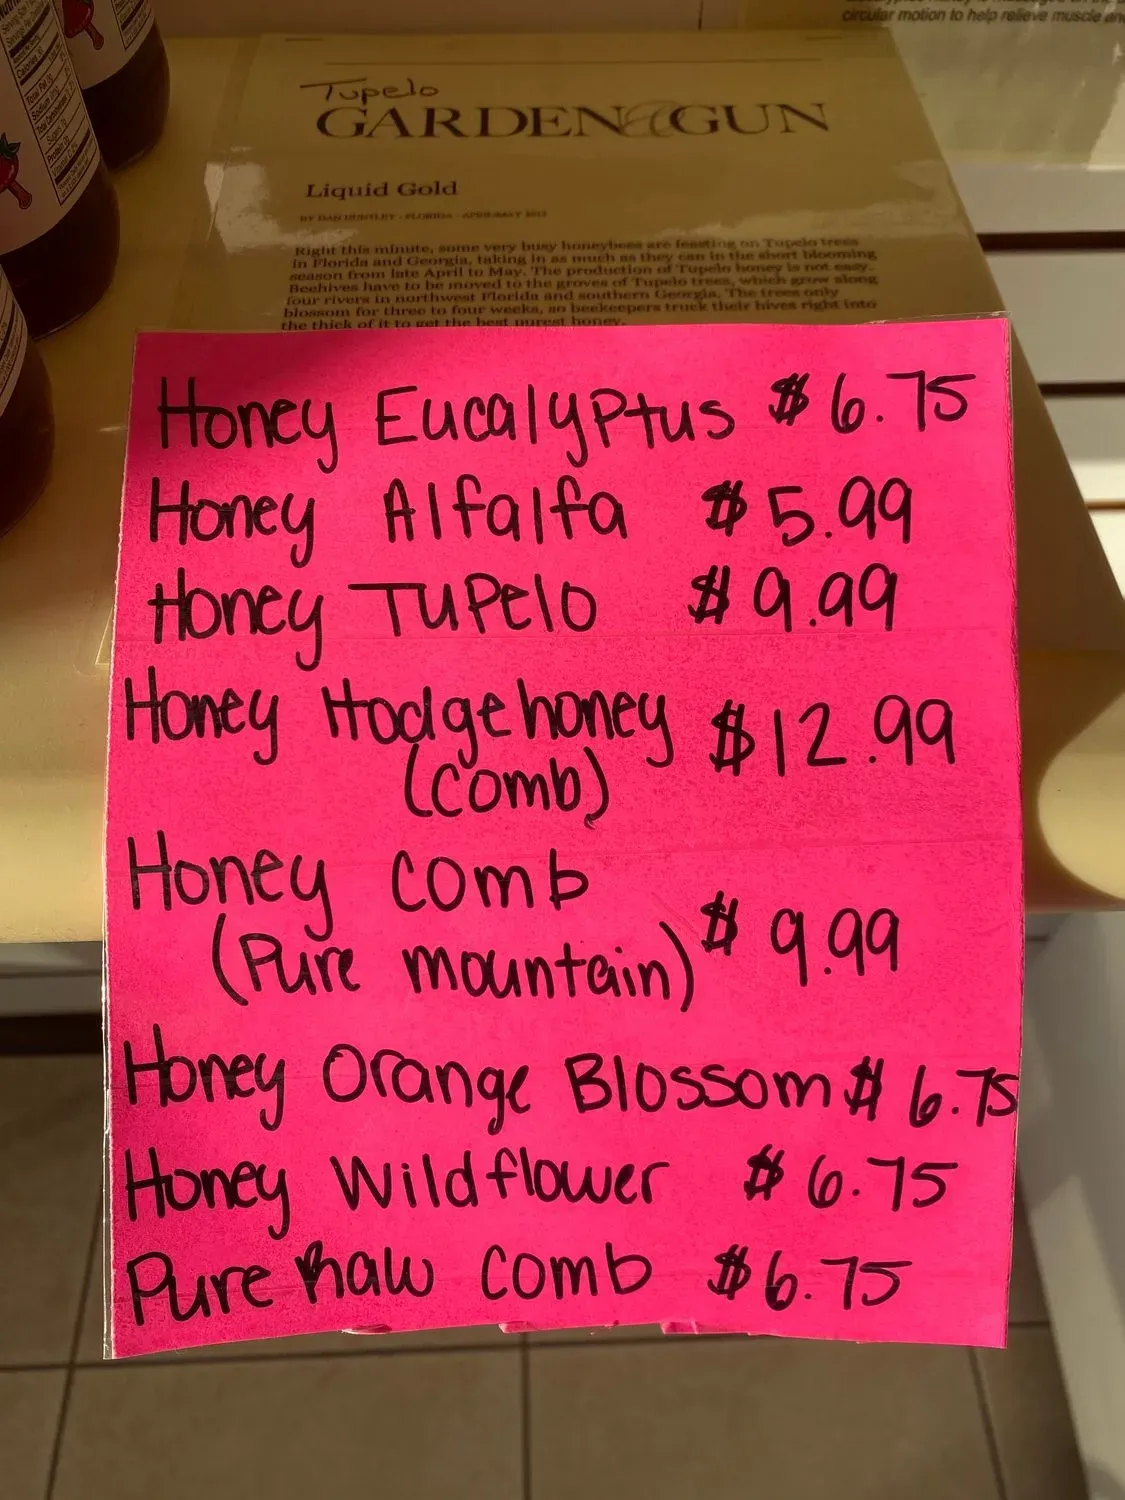 circular motion to help relieve muscle and
Tupelo
GARDEN & GUN
Liquid Gold
BY DAN HUNTLEY - FLORIDA - APRIL/MAY 2012
Right this minute, some very busy honeybees are feasting on Tupelo trees
in Florida and Georgia, taking in as much as they can in the short blooming
season from late April to May. The production of Tupelo honey is not easy.
Beehives have to be moved to the groves of Tupelo trees, which grow along
four rivers in northwest Florida and southern Georgia. The trees only
blossom for three to four weeks, so beekeepers truck their hives right into
the thick of it to get the best purest honey.
Honey Eucalyptus $6.75
Honey Alfalfa $5.99
Honey Tupelo $9.99
Honey Hodgehoney $12.99
(comb)
Honey comb
(Pure mountain) $9.99
Honey Orange Blossom $6.75
Honey Wildflower $6.75
Pure Raw comb $6.75